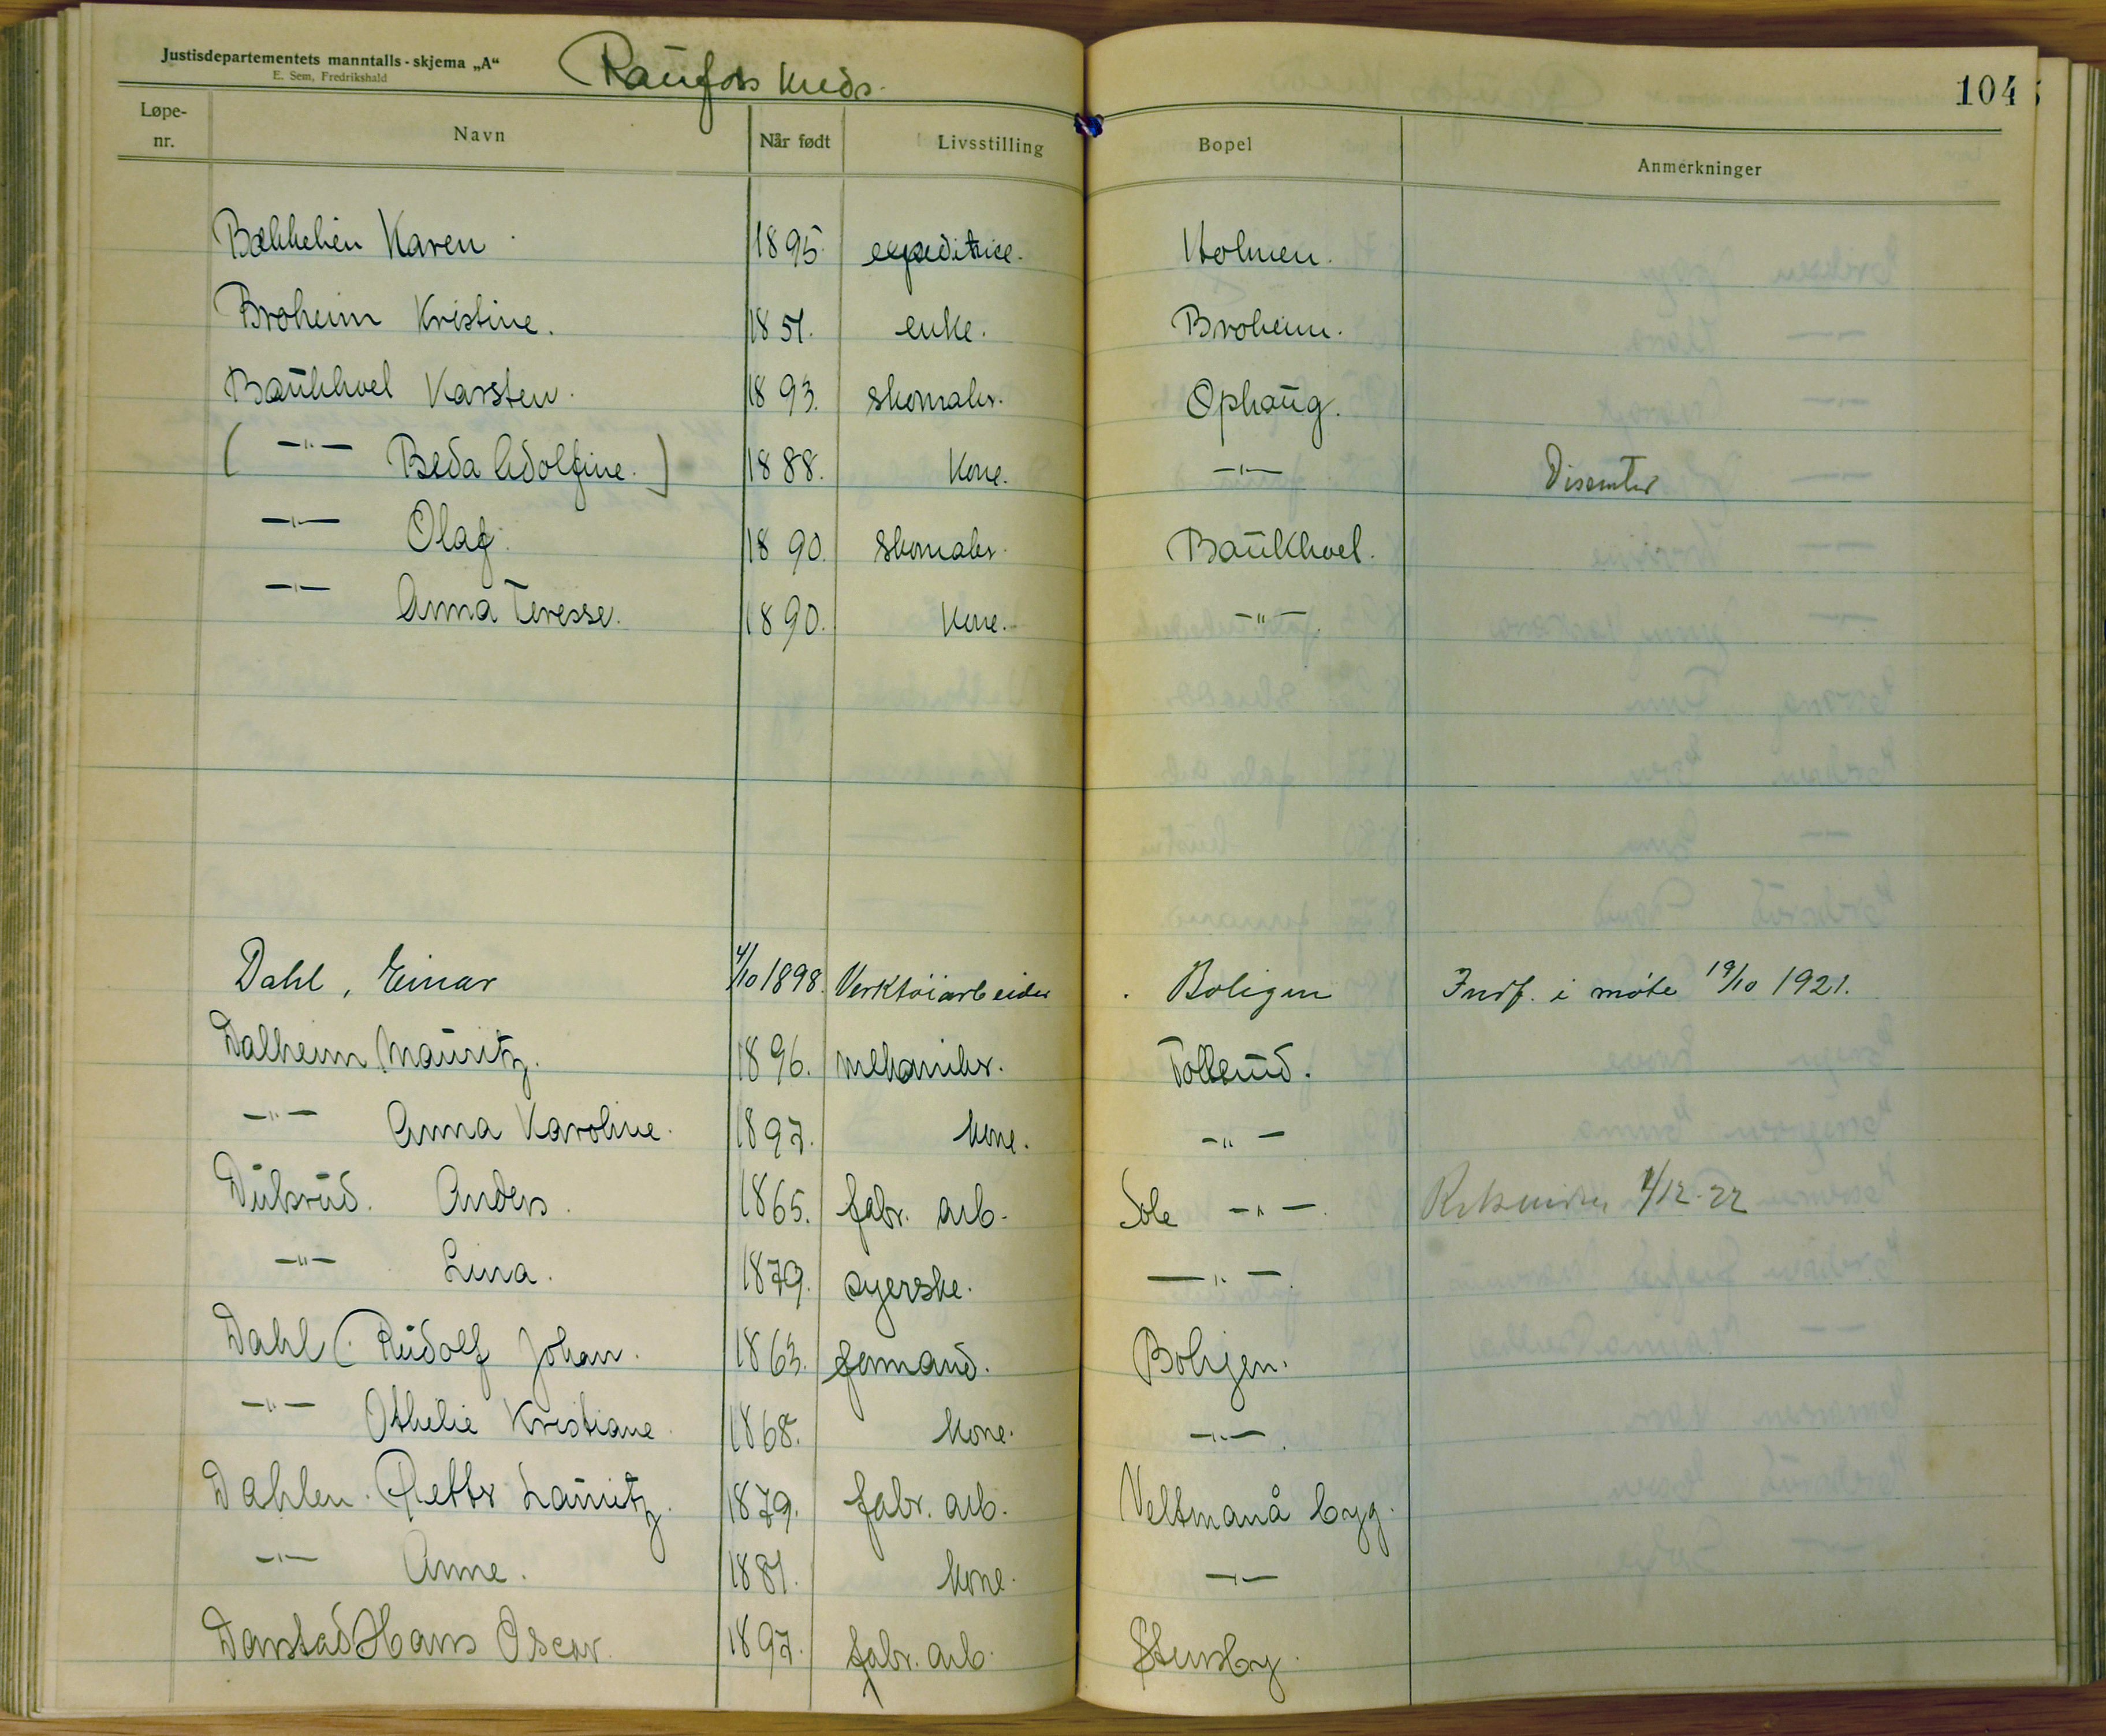 Justisdepartementets manntalls-skjema „A“
E. Sem, Fredrikshald
Raufoss kreds.
104
Løpe-nr. Navn Når født Livsstilling Bopel Anmerkninger
Bækkelien Karen 1895. expeditrice. Holmen.
Broheim Kristine. 1851. enke. Broheim.
Baukhvel Karsten. 1893. skomaker. Ophaug.
( —"— Beda Adolfine.) 1888. Kone. —"— Disenter
—"— Olaf. 1890. skomaker. Baukhvel.
—"— Anna Teresse. 1890. Kone. —"—
Dahl, Einar 4/10 1898. Verktöiarbeider Boligen Indf. i møte 19/10 1921.
Dalheim Mauritz. 1896. mekaniker. Tollerud.
—"— Anna Karoline. 1897. kone. —"—
Anders. 1865. fabr. arb. —"— /12-22
—"— Lina. 1879. syerske. —"—
Dahl Rudolf Johan. 1863. formand. Boligen.
—"— Othelie Kristiane 1868. kone. —"—
Dahlen. Petter Lauritz. 1879. fabr. arb. Veltmanå byg.
—"— Anne. 1881. kone. —"—
Hans Oscar. 1897. fabr. arb. Stensby.